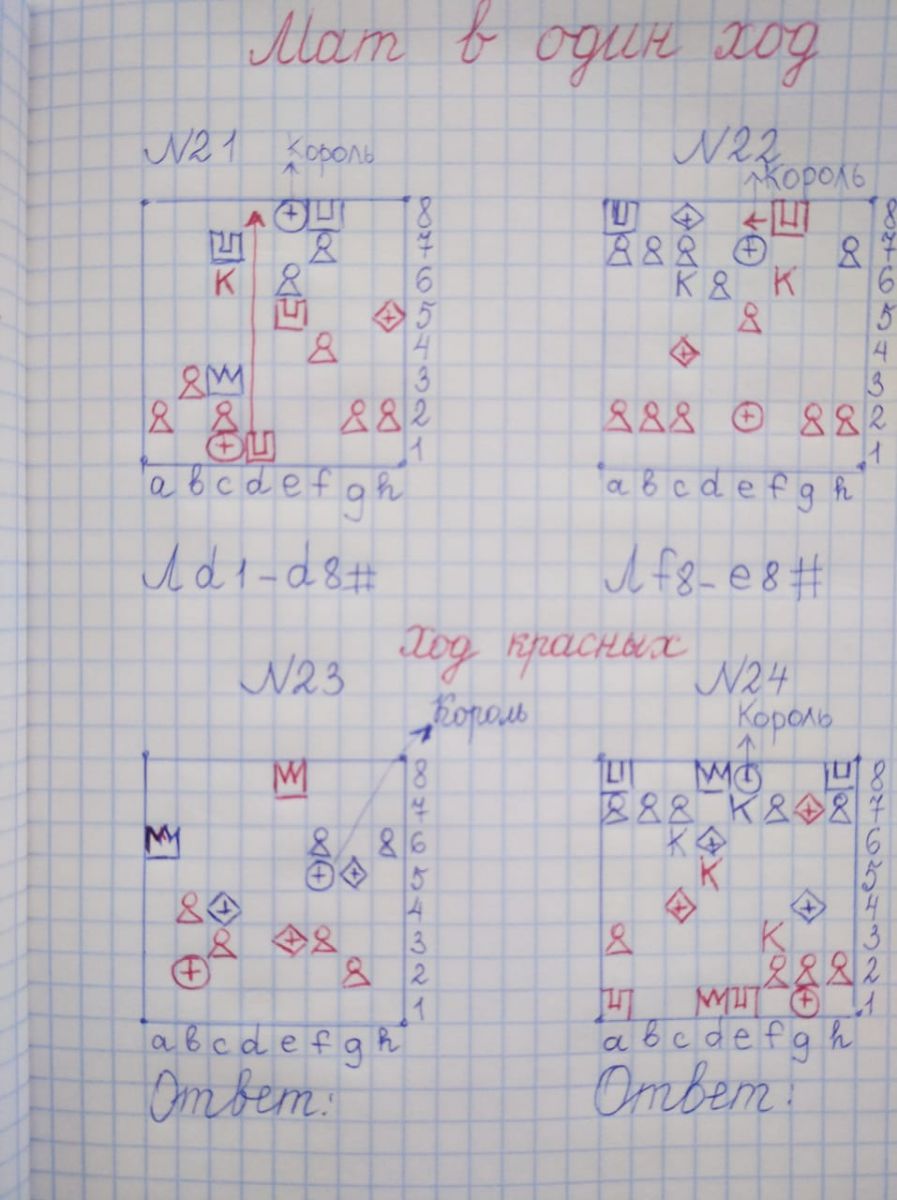 Мат в один ход
N21
Король
N22
Король
8
7
K 6
5
4
3
2
1
a b c d e f g h
8
7
K K 6
5
4
3
2
1
a b c d e f g h
Лd1-d8#
Лf8-e8#
Ход красных
N23
Король
N24
Король
8
7
6
5
4
3
2
1
a b c d e f g h
8
K 7
K 6
K 5
4
K 3
2
1
a b c d e f g h
Ответ:
Ответ: